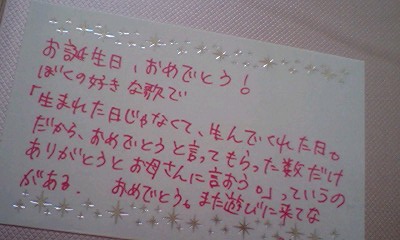 お誕生日、おめでとう!
ぼくの好きな歌で
「生まれた日じゃなくて、生んでくれた日。
だから、おめでとうと言ってもらった数だけ
ありがとうとお母さんに言おう。」っていうの
がある. おめでとう。また遊びに来てな